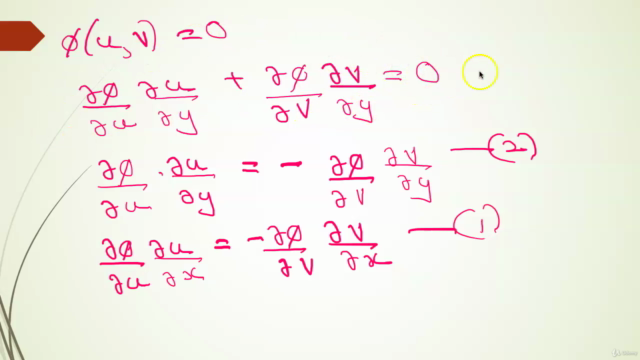 ∅(u, v) = 0
∂∅/∂u ∂u/∂y + ∂∅/∂v ∂v/∂y = 0
∂∅/∂u . ∂u/∂y = - ∂∅/∂v ∂v/∂y —(2)
∂∅/∂u ∂u/∂x = - ∂∅/∂v ∂v/∂x —(1)